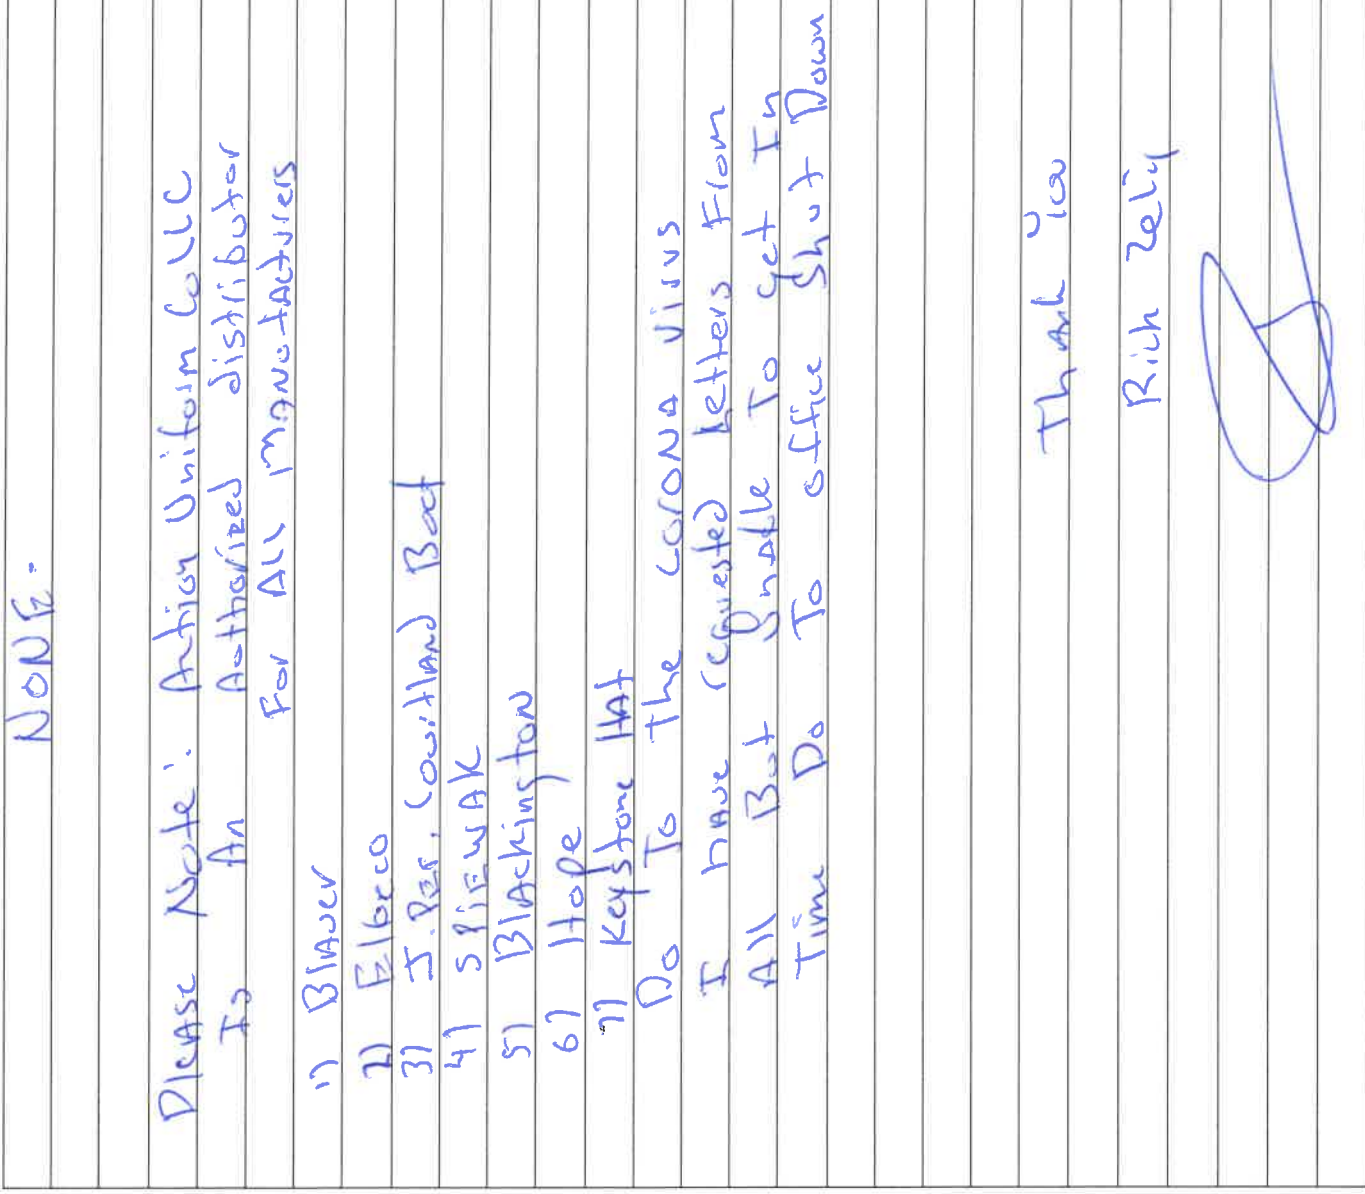 NONE.
Please Note: Action Uniform Co LLC
Is An Authorized distributor
For All Manufacturers
1) Blauer
2) Elbeco
3) J. Per. Courtland Boot
4) SPIEWAK
5) Blackington
6) Hope
7) Keystone Hat
Do To the Corona Virus
I have requested Letters From
All But Unable To get In
Time Do To office Shut Down
Thank You
Rich